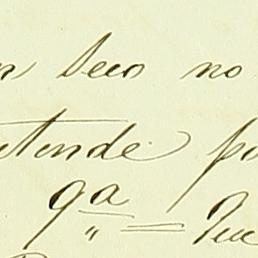 Seco no
tende
9ª = Que